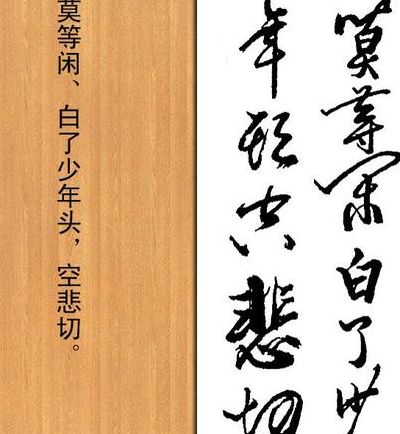 莫等闲白了少
年头空悲切
莫等闲、白了少年头，空悲切。